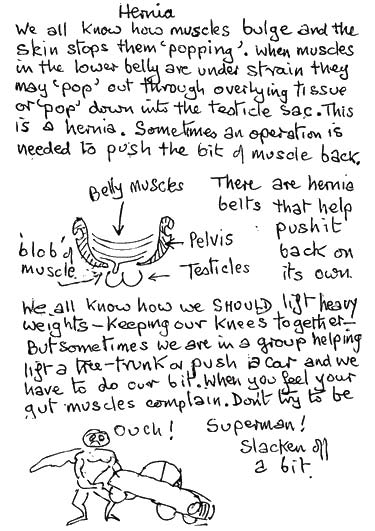 Hernia
We all know how muscles bulge and the
skin stops them 'popping'. When muscles
in the lower belly are under strain they
may 'pop' out through overlying tissue
or 'pop' down into the testicle sac. This
is a hernia. Sometimes an operation is
needed to push the bit of muscle back.
Belly Muscles
There are hernia
belts that help
push it
back on
its own.
'blob' of
muscle
Pelvis
Testicles
We all know how we SHOULD lift heavy
weights - Keeping our knees together -
But sometimes we are in a group helping
lift a tree-trunk or push a car and we
have to do our bit. When you feel your
gut muscles complain. Don't try to be
Superman!
Slacken off
a bit.
Ouch!